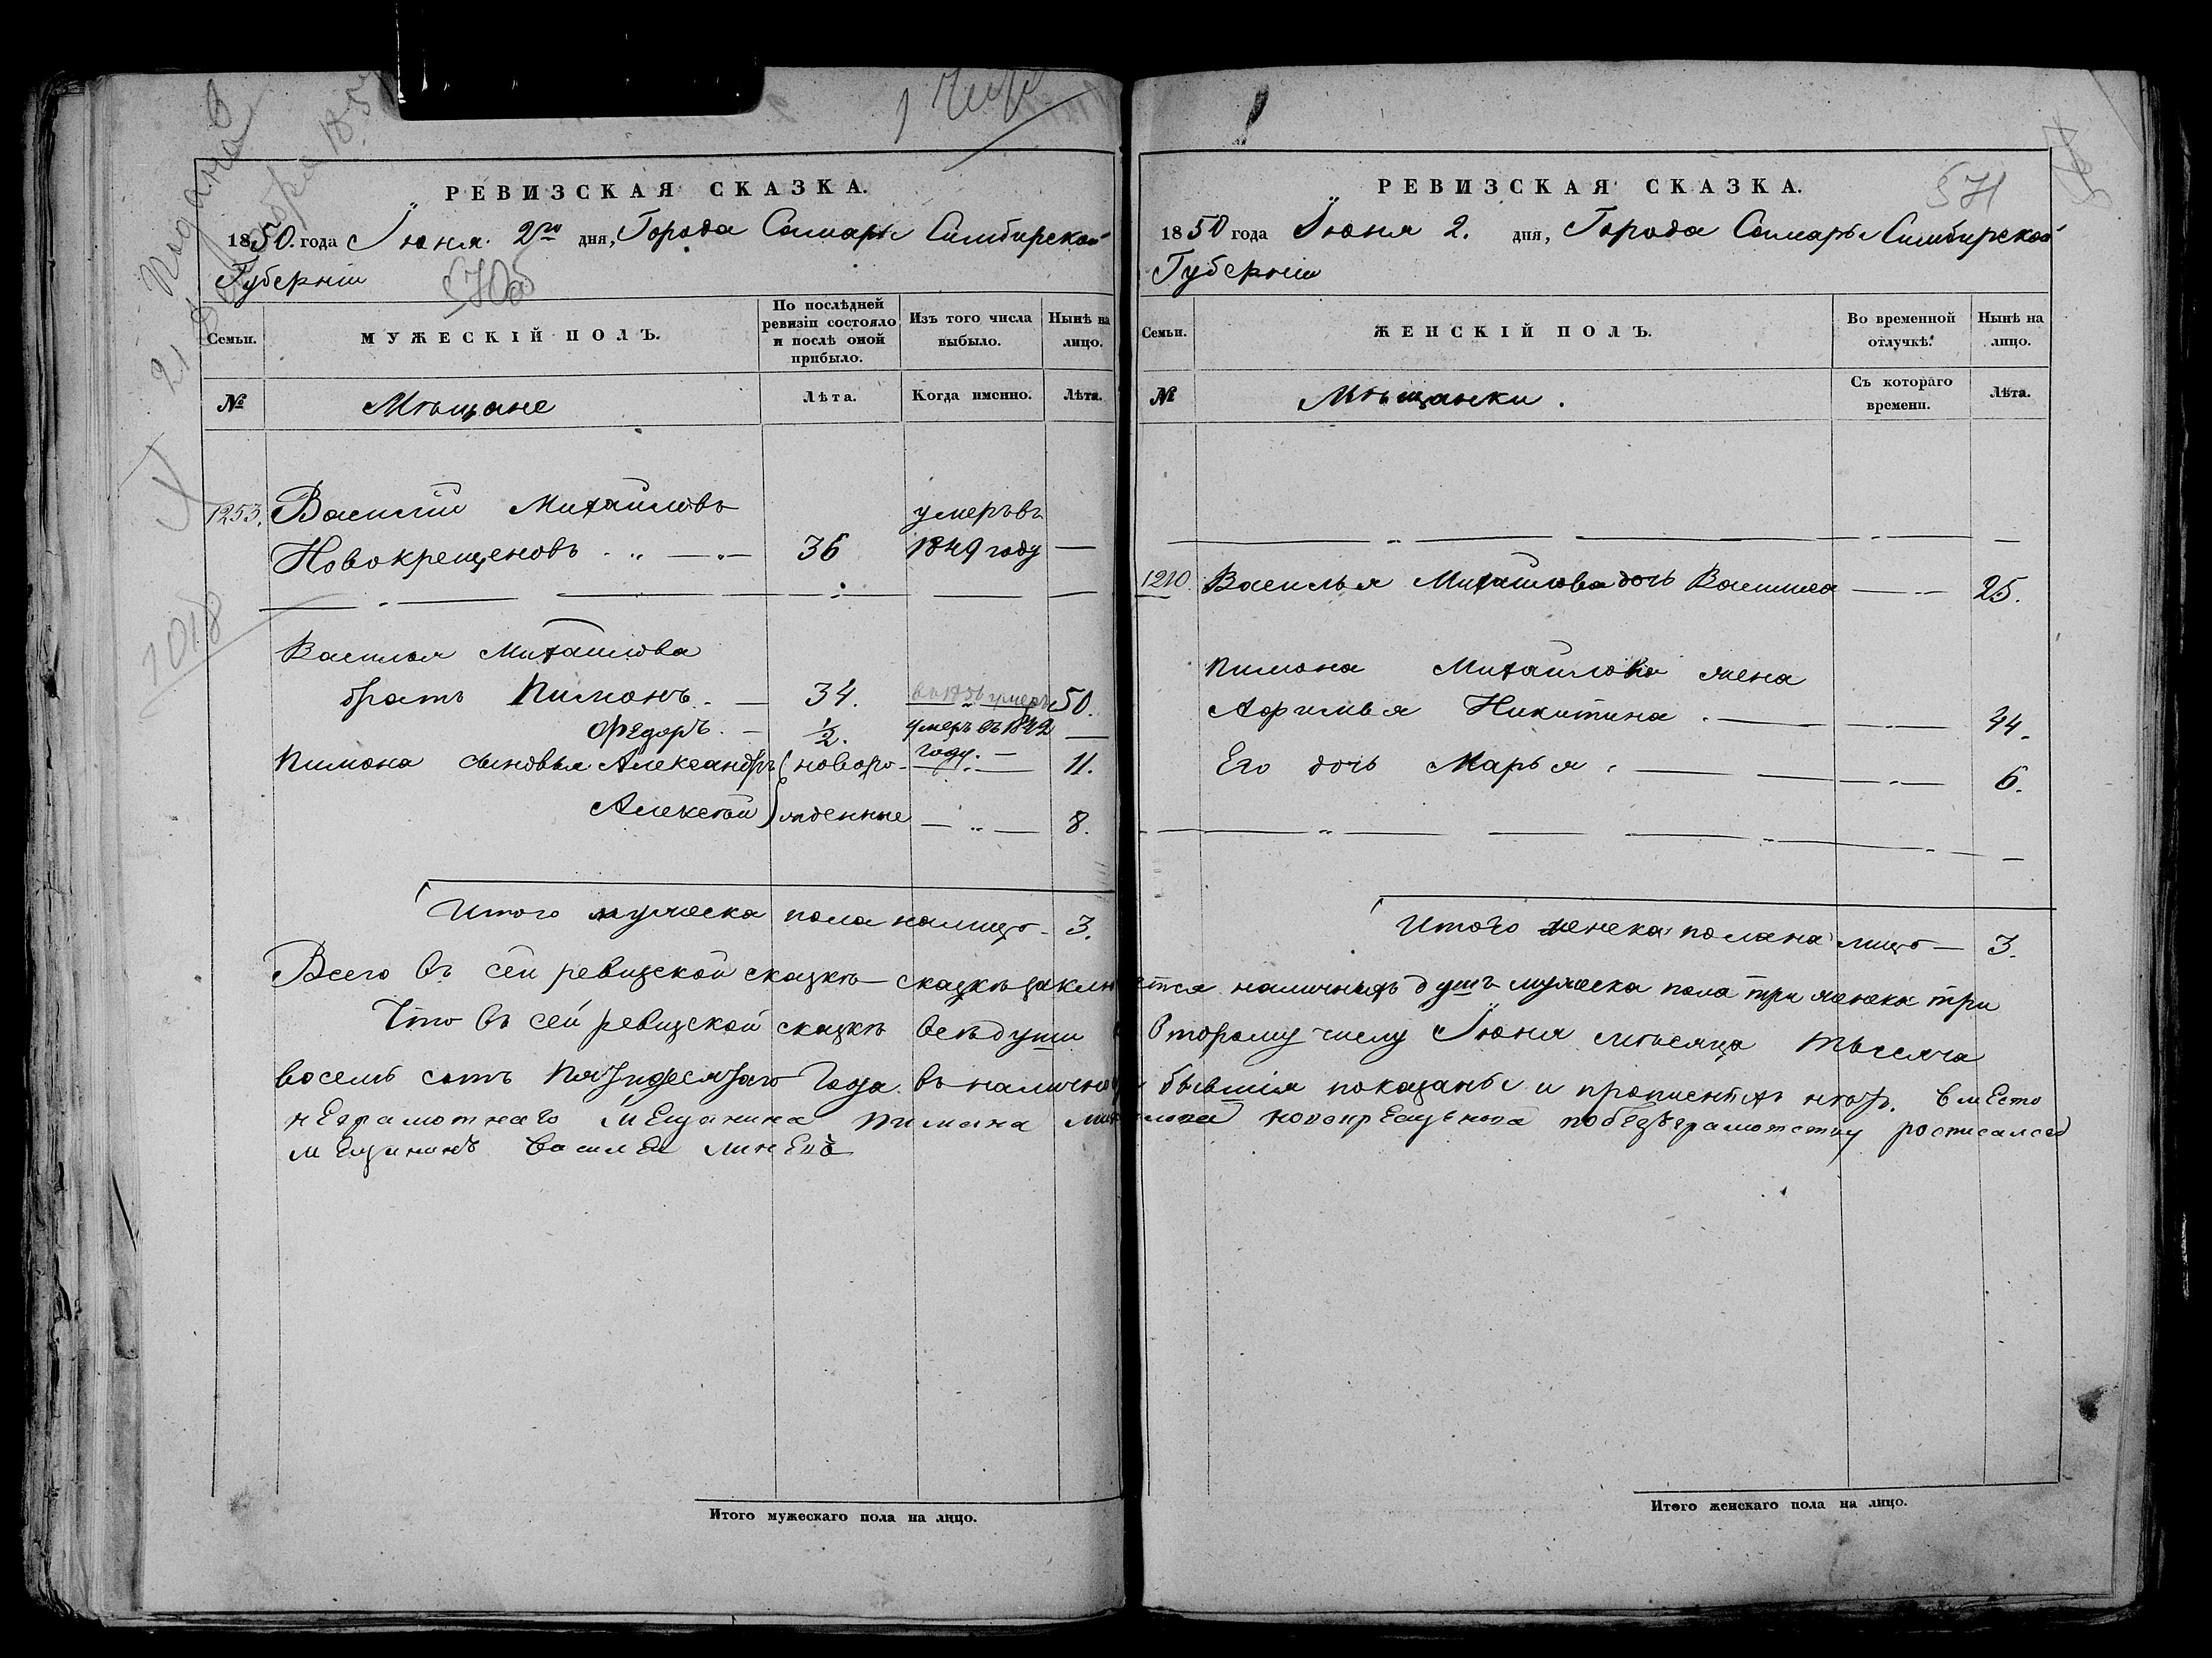 1
Подана
21 1850
1018
РЕВИЗСКАЯ СКАЗКА.
1850. года Іюня 2го дня, Города Самары Симбирской
Губерніи
Семьи.
МУЖЕСКІЙ ПОЛЪ.
По послѣдней ревизіи состояло и послѣ оной прибыло.
Изъ того числа выбыло.
Нынѣ на лицо.
№
Мѣщане
Лѣта.
Когда именно.
Лѣта.
1253. Василій Михайловъ умеръ въ
Новокрещеновъ 36 1849 году —
Василья Михайлова
братъ Пимонъ. — 34. умеръ 50.
Федоръ. — ½. умеръ въ 1842 году. —
Пимона сыновья Александръ новоро- — 11.
Алексѣй жденные — 8.
Итого мужеска пола налицо — 3.
РЕВИЗСКАЯ СКАЗКА.
571
1850 года Іюня 2. дня, Города Самары Симбирской
Губерніи
Семьи.
ЖЕНСКІЙ ПОЛЪ.
Во временной отлучкѣ.
Нынѣ на лицо.
№
Мѣщанки.
Съ котораго времени.
Лѣта.
1210 Василья Михайлова дочь — 25.
Пимона Михайлова жена
Афимья Никитина. — 44.
Его дочь Марья. — 6.
Итого женска пола на лицо — 3.
Всего въ сей ревизской сказкѣ — сказкѣ заключается наличныхъ душъ мужеска пола три женска три
Что въ сей ревизской сказкѣ всѣ души второму числу Іюня мѣсяца тысяча
восемь сотъ пятидесятаго года въ наличности бывшія показаны и прописныхъ нѣтъ. вмЕсто
нЕграмотнаго мЕщанина пимана михалова новокрЕщЕнова побЕзъграмотству росписался
мЕщининъ василЕй
Итого мужескаго пола на лицо.
Итого женскаго пола на лицо.